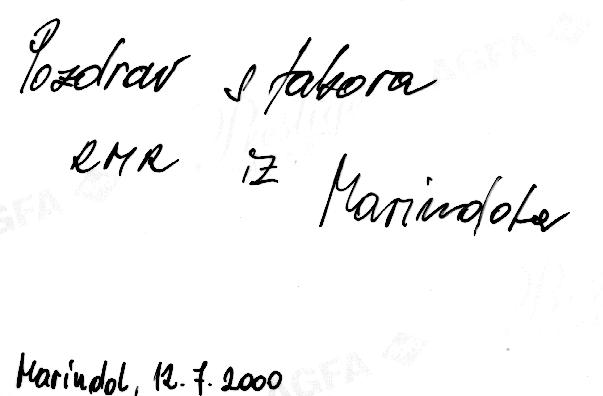 Pozdrav s tabora
RMR iz Marindola
Marindol, 12.7.2000
AGFA
AGFA
AGFA